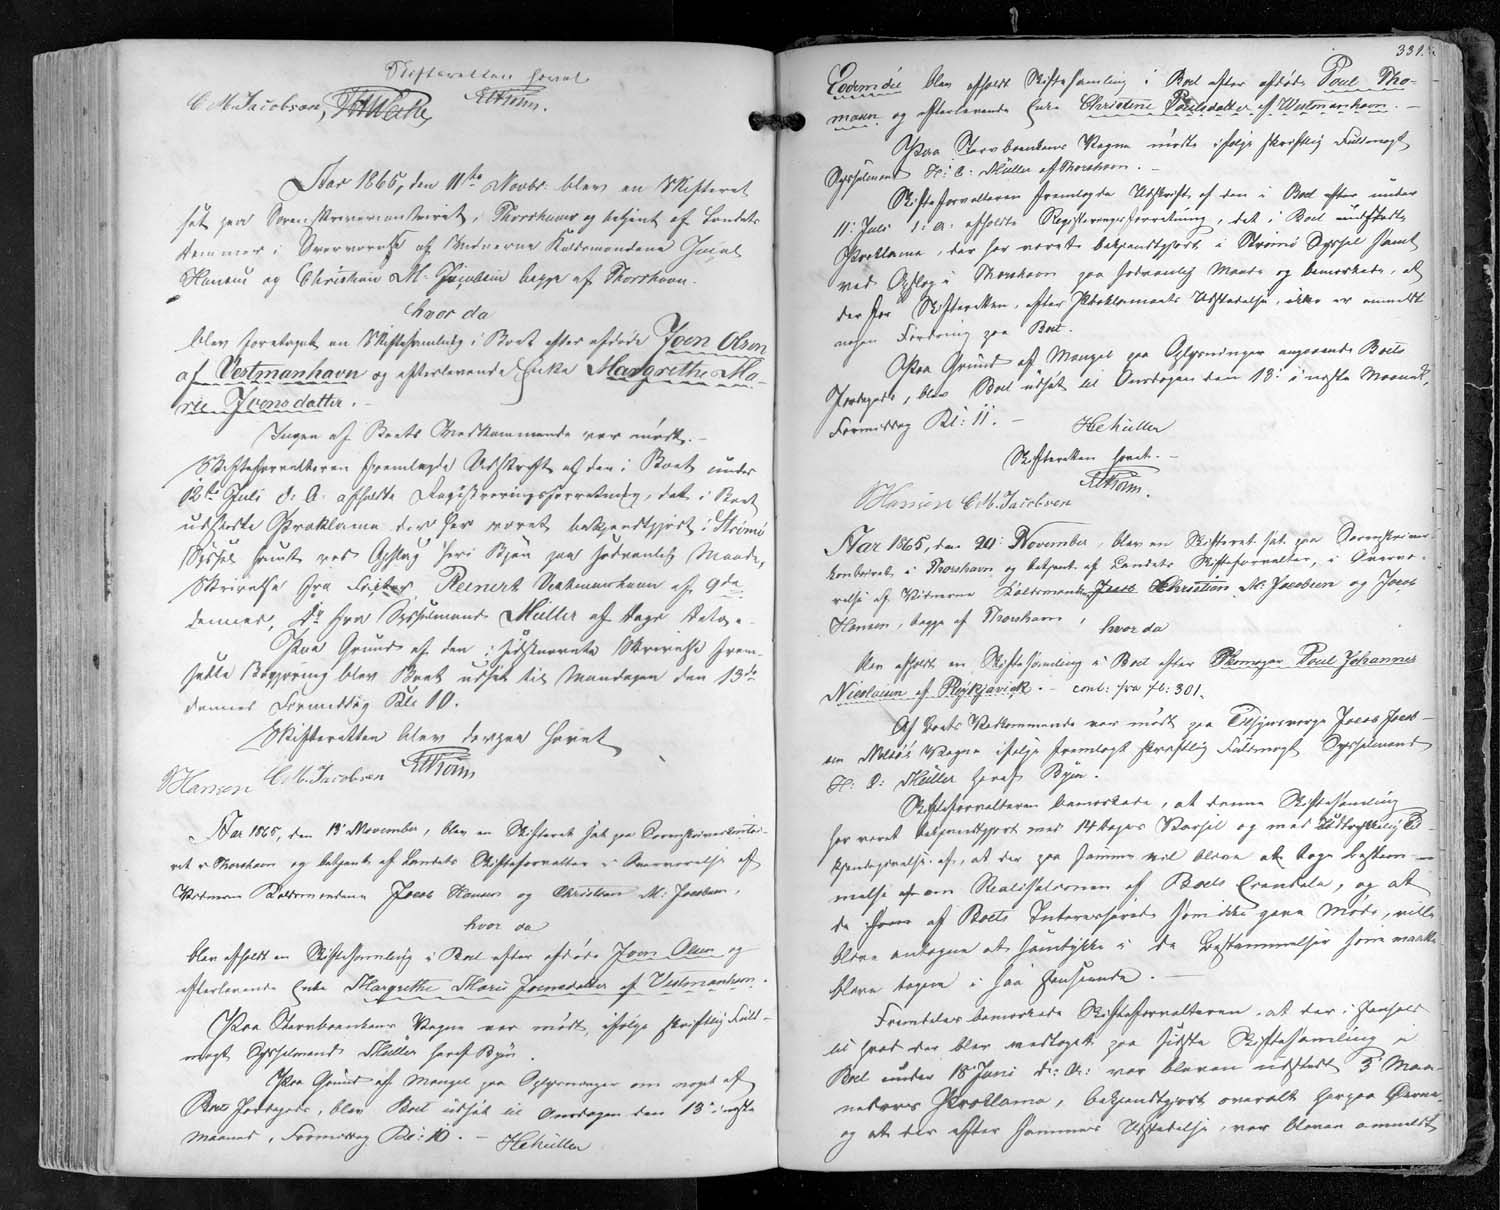 Skifteretten hævet
C M. Jacobsen,
Aar 1865, den 11te Novbr. blev en Skifteret
sat paa Sorenskrivercontoiret i Thorshavn og betjent af Landets
Dommer i Overværelse af Vidnerne Kaldsmændene Jacob
Hansen og Christian M. Jacobsen begge af Thorshavn.
hvor da
blev foretaget en Skiftesamling i Boet efter afdøde Joen Olsen
af Vestmanhavn og efterlevende Enke Margrethe Ma-
rie Joensdatter.
Ingen af Boets Vedkommende var mødt.
Skifteforvalteren fremlagde Udskrift af den i Boet under
12te Juli d. A. afholdte Registreringsforretning, det i Boet
udstedte Proklama der har været bekjendtgjort i Strømø
Syssel samt ved Opslag her i Byen paa sædvanlig Maade,
Skrivelse fra Reinert Vestmanhavn af 9de
dennes, Do fra Sysselmand Müller af Dags Dato.
Paa Grund af den i sidstnævnte Skrivelse frem-
satte Begjæring blev Boet udsat til Mandagen den 13de
dennes Formiddag Kl. 10.
Skifteretten blev derpaa hævet
JHansen C M. Jacobsen
Aar 1865, den 13' November, blev en Skifteret sat paa Sorenskriverkontoi-
ret i Thorshavn og betjent af Landets Skifteforvalter i Overværelse af
Vidnerne Kaldsmændene Jacob Hansen og Christian M. Jacobsen,
hvor da
blev afholdt en Skiftesamling i Boet efter afdøde Joen Olsen og
efterlevende Enke Margrethe Marie Joensdatter af Vestmanhavn.
Paa Stervboenkens Vegne var mødt, ifølge skriftlig Fuld-
magt Sysselmand Müller heraf Byen.
Paa Grund af Mangel paa Oplysninger om noget af
Boets Jordegods, blev Boet udsat til Onsdagen den 13' i næste
Maaned, Formiddag Kl: 10. - HCMüller
331.
Eodem die blev afholdt Skiftesamling i Boet efter afdøde Poul Tho-
masen og efterlevende Enke Christine Poulsdatter af Westmanhavn.
Paa Stervboenkens Vegne mødte ifølge skriftlig Fuldmagt
Sysselmand H: C: Müller af Thorshavn.
Skifteforvalteren fremlagde Udskrift af den i Boet efter under
11: Juli d: A: afholdte Registreringsforretning, det i Boet udstedte
Proklama, der har været bekjendtgjort i Strømø Syssel samt
ved Opslag i Thorshavn paa sædvanlig Maade og bemærkede, at
der for Skifteretten, efter Proklamaets Udstedelse, ikke er anmeldt
nogen Fordring paa Boet.
Paa Grund af Mangel paa Oplysninger angaaende Boets
Jordegods, blev Boet udsat til Onsdagen den 13: i næste Maaned,
Formiddag Kl: 11. - HCMüller
Skifteretten hævet. -
JHansen C M. Jacobsen
Aar 1865, den 20: November, blev en Skifteret sat paa Sorenskriver-
kontoiret i Thorshavn og betjent af Landets Skifteforvalter, i Overvæ-
relse af Vidnerne Kaldsmændene Jacob Christian M. Jacobsen og Jacob
Hansen, begge af Thorshavn, hvor da
blev afholdt en Skiftesamling i Boet efter Poul Johannes
Nicolaisen af Reykjavick. - cont: fra fol: 301.
Af Boets Vedkommende var mødt paa Tilsynsværge Jacob Jacob-
sen Vegne ifølge fremlagt skriftlig Fuldmagt Sysselmand
H: C: Müller heraf Byen.
Skifteforvalteren bemærkede, at denne Skiftesamling
har været bekjendtgjort med 14 Dages Varsel og med udtrykkelig Til-
kjendegivelse af, at der paa samme vil blive at tage Bestem-
melse om Realisationen af Boets Eiendele, og at
de af Boets Interesserede som ikke gave Møde, ville
blive antagne at samtykke i de Bestemmelser som maatte
blive tagne i saa Henseende. -
Fremdeles bemærkede Skifteforvalteren at der i Henhold
til hvad der blev vedtaget paa sidste Skiftesamling i
Boet under 18 Juni d: A: var bleven udstedt 3 Maa-
neders Proklama, bekjendtgjort overalt herpaa Øerne,
og at der efter sammes Udstedelse, var bleven anmeldt